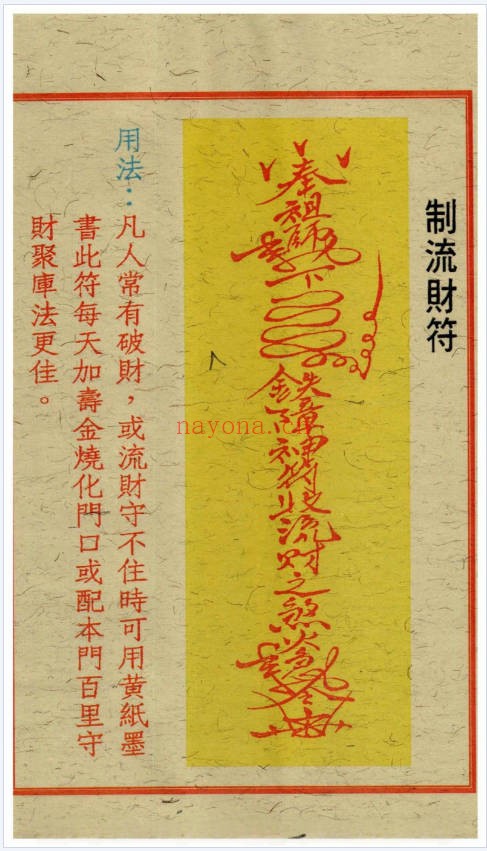 制流財符
奉祖師
下
鉄章神符收流財之煞
用法：凡人常有破財，或流財守不住時可用黄紙墨
書此符每天加壽金燒化門口或配本門百里守
財聚庫法更佳。
nayona.c